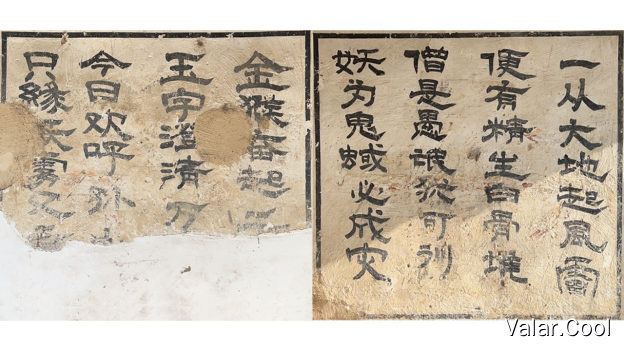 一从大地起風雷
便有精生白骨堆
僧是愚氓犹可训
妖为鬼蜮必成灾
金猴奋起
玉宇澄清万
今日欢呼孙
只緣妖雾又